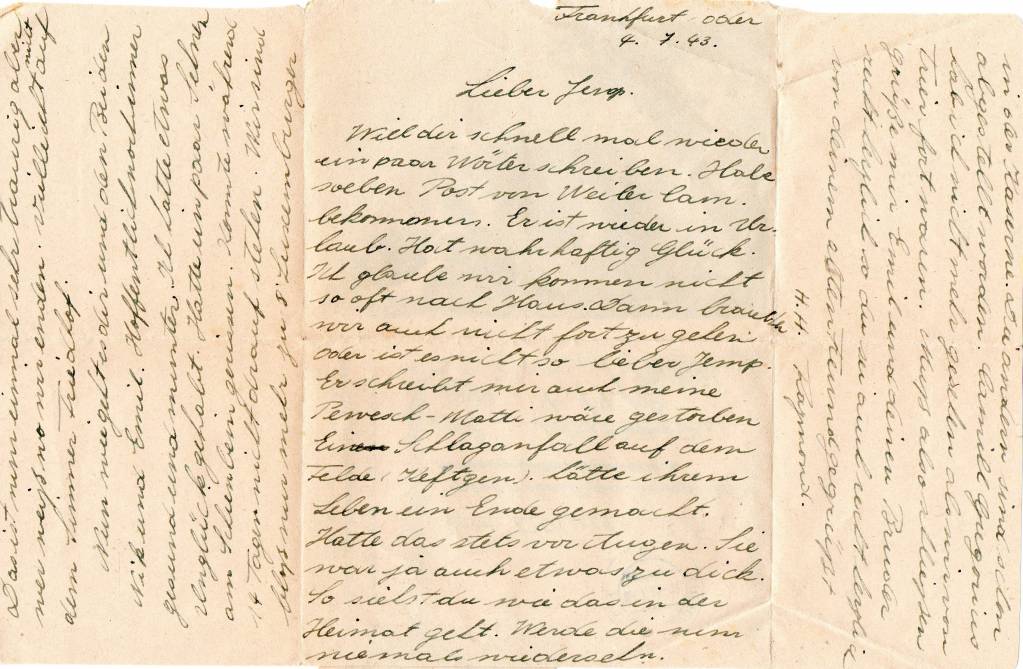 Frankfurt oder
4. 7. 43.
Lieber Jemp.
Will dir schnell mal wieder
ein paar Wörter schreiben. Habe
soeben Post von Weiler Cam.
bekommen. Er ist wieder in Ur-
laub. Hat wahrhaftig Glück.
Ich glaube wir kommen nicht
so oft nach Haus. Dann brauchen
wir auch nicht fort zu gehen
oder ist es nicht so lieber Jemp.
Er schreibt mir auch meine
Pewesch-Matti wäre gestorben
Ein Schlaganfall auf dem
Felde (Heftgen). hätte ihrem
Leben ein Ende gemacht.
Hatte das stets vor Augen. Sie
war ja auch etwas zu dick.
So siehst du wie das in der
Heimat geht. Werde die nun
niemals wiedersehn.
Das ist nun einmal sehr traurig aber
wer weiss wo wir enden. vielleicht auf
dem Limmer Friedhof. mit
Nun wie geht es dir und den Beiden
Nik und Emil. Hoffentlich noch immer
gesund und munter. Ich hatte etwas
Unglück gehabt. Hatte ein paar Sehnen
am
14 Tagen nicht drauf stehen. Wir sind
bloss nur mehr zu 8 Luxemburger
in der Kaserne. Die andern sind schon
abgestellt worden. Camill Gregorius
habe ich nicht mehr gesehn als wir von
Trier fort waren. Muss also schliessen
grüsse mir Emil und deinen Bruder
recht herzlich so du sei auch recht herzlich
von deinem alten Freund gegrüsst
H. H. Raymond.